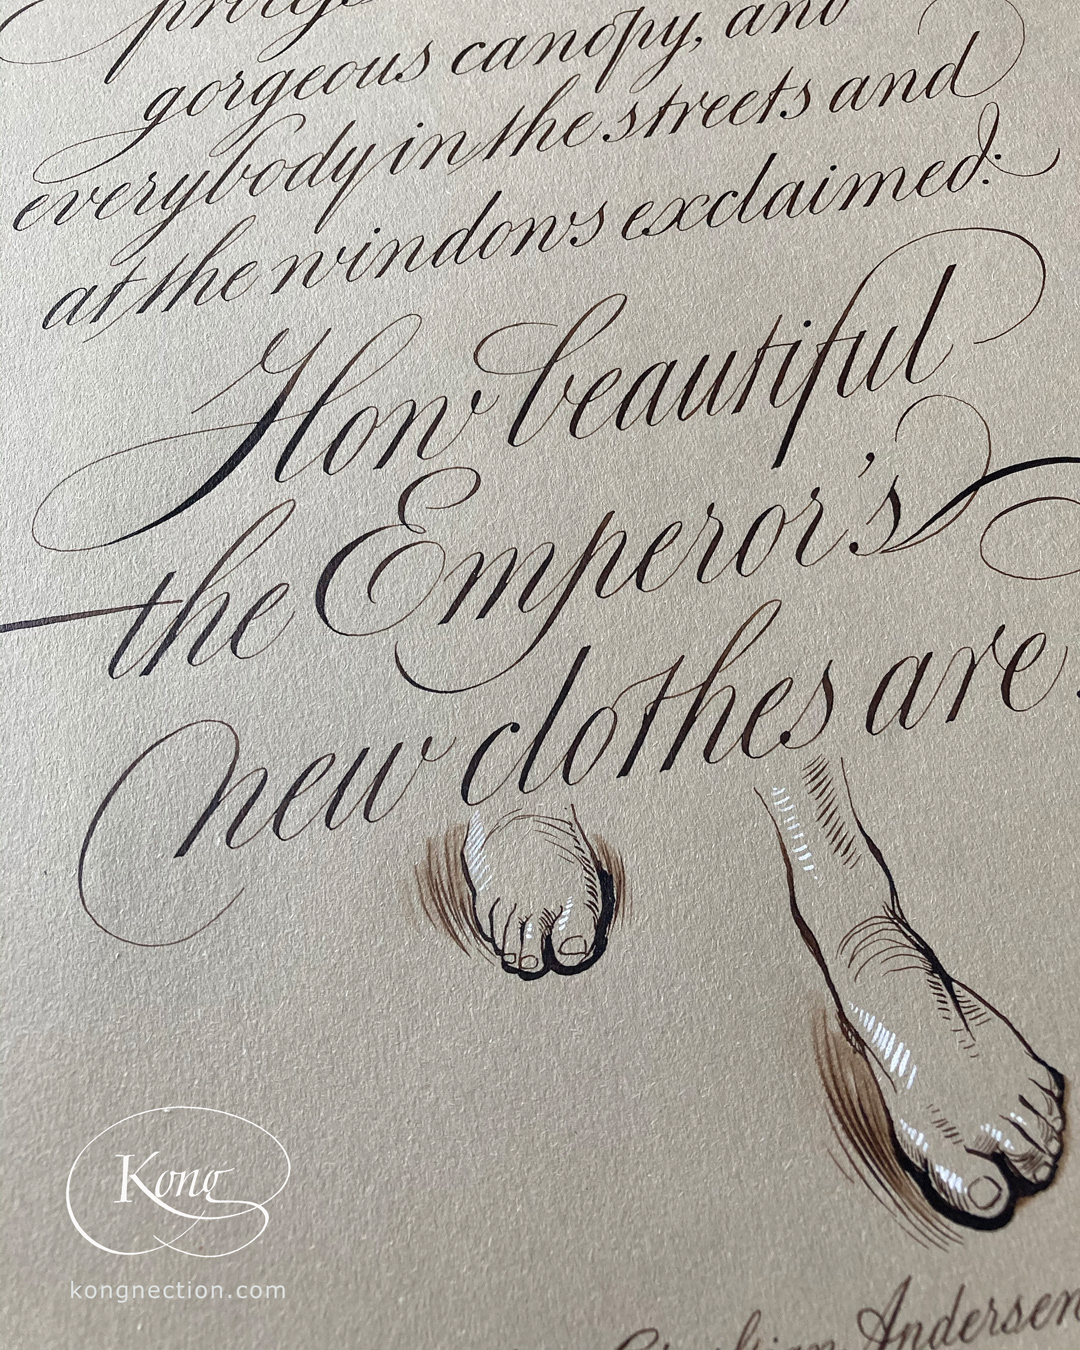 gorgeous canopy, and
everybody in the streets and
at the windows exclaimed:
How beautiful
the Emperor's
new clothes are
Andersen
Kong
kongnection.com